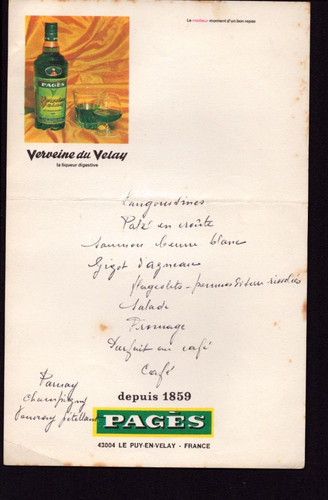 Le meilleur moment d'un bon repas
PAGÈS
Verveine du Velay
la liqueur digestive
Langoustines
Paté en croûte
Saumon beurre blanc
Gigot d'agneau
flageolets - pommes de terre rissolées
Salade
Fromage
Parfait au café
Café
Parnay
Champigny
Vouvray pétillant
depuis 1859
PAGÈS
43004 LE PUY-EN-VELAY - FRANCE